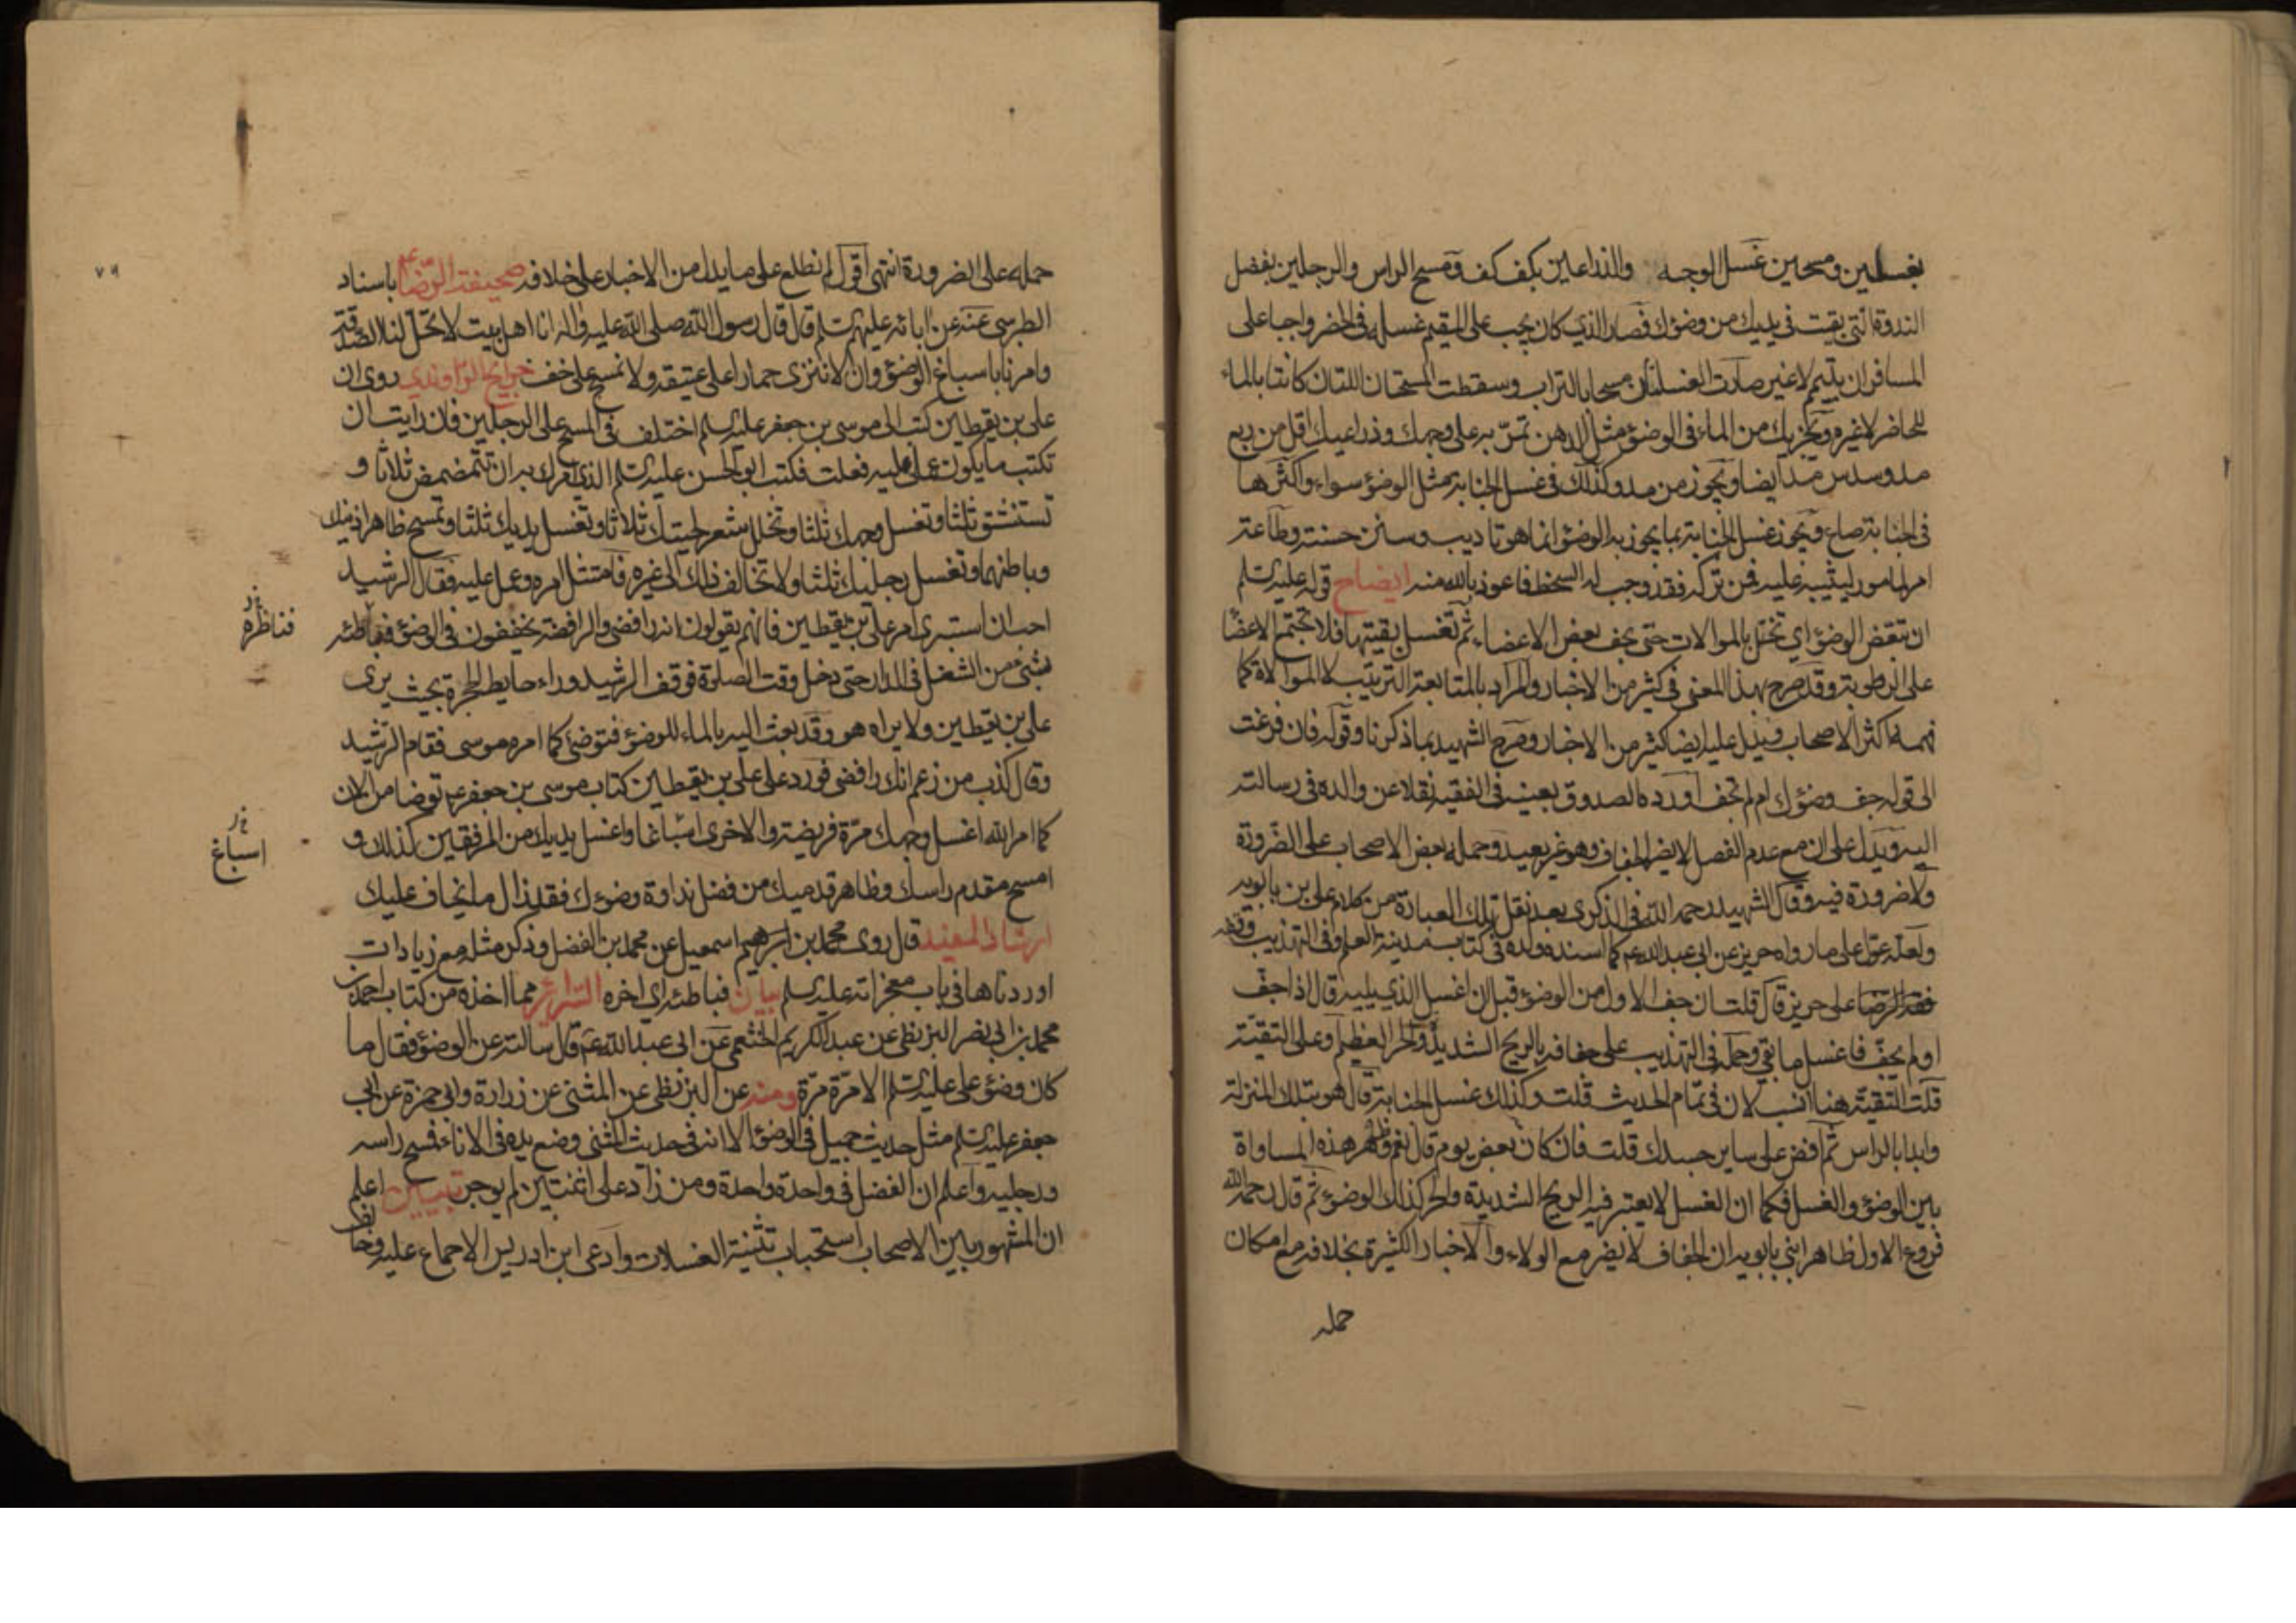 بغسلين ومسحين غسل الوجه والذراعين بكف كف ومسح الراس والرجلين بفضل
الندوة التي بقيت في يديك من وضوئك فصار الذي كان يجب على المقيم غسله في الحضر واجبا على
المسافر ان يتيمم لا غير صارت الغسلتان مسحا بالتراب وسقطت المسحتان اللتان كانتا بالماء
للحاضر لا غيره ويجزيك من الماء في الوضوء مثل الدهن تمر به على وجهك وذراعيك اقل من ربع
مد وسدس مد ايضا ويجوز من مد وكذلك في غسل الجنابة مثل الوضوء سواء واكثرها
في الجنابة صاع ويجوز غسل الجنابة بما يجوز به الوضوء انما هو تاديب وسنن حسنة وطاعة
امر لمامور ليثيبه عليه فمن تركه فقد وجب له السخط فاعوذ بالله منه ايضاح قوله عليه السلم
ان تنقض الوضوء اي تخل بالموالات حتى يجف بعض الاعضاء ثم تغسل بقيتها فلا تجتمع الاعضا
على الرطوبة وقد صرح بهذا المعنى في كثير من الاخبار والمراد بالمتابعة الترتيب لا الموالاة كما
فهمه اكثر الاصحاب فيدل عليه ايضا كثير من الاخبار وصرح الشهيد بما ذكرنا وقوله فان فرغت
الى قوله جف وضوئك ام لم تجف اورده الصدوق بعينه في الفقيه نقلا عن والده في رسالته
اليه ويدل على ان مع عدم الفصل لا يضر الجفاف وهو غير بعيد وحمله بعض الاصحاب على الضرورة
ولا ضرورة فيه وقال الشهيد رحمه الله في الذكرى بعد نقل تلك العبارة من كلام علي بن بابويه
ولعله عول على ما رواه حريز عن ابي عبد الله ع كما اسنده ولده في كتاب مدينة العلم وفي التهذيب وقفه
على حريز قال قلت ان جف الاول من الوضوء قبل ان اغسل الذي يليه قال اذا جف
او لم يجف فاغسل ما بقي وحمله في التهذيب على جفافه بالريح الشديد والحر العظيم وعلى التقية
قلت التقية هنا انسب لان في تمام الحديث قلت وكذلك غسل الجنابة قال هو بتلك المنزلة
وابدا بالراس ثم افض على ساير جسدك قلت فان كان بعض يوم قال نعم وظاهر هذه المساواة
بين الوضوء والغسل فكما ان الغسل لا يعتبر فيه الريح الشديدة والحر كذلك الوضوء ثم قال رحمه الله
فروع الاول ظاهر ابني بابويه ان الجفاف لا يضر مع الولاء والاخبار الكثيرة بخلافه مع امكان
حمله
٧٩
حمله على الضرورة انتهى اقول لم نطلع على ما يدل من الاخبار على خلافه صحيفة الرضا ع باسناد
الطبرسي عنه عن ابائه عليهم السلم قال قال رسول الله صلى الله عليه واله انا اهل بيت لا تحل لنا الصدقة
وامرنا باسباغ الوضوء وان لا ننزى حمارا على عتيقه ولا نمسح على خف خرايج الراوندي روى ان
علي بن يقطين كتب الى موسى بن جعفر عليه السلم اختلف في المسح على الرجلين فان رايت ان
تكتب ما يكون عملي عليه فعلت فكتب ابو الحسن عليه السلم الذي امرك به ان تتمضمض ثلاثا و
تستنشق ثلثا وتغسل وجهك ثلثا وتخلل شعر لحيتك ثلاثا وتغسل يديك ثلثا وتمسح ظاهر اذنيك
وباطنهما وتغسل رجليك ثلثا ولا تخالف ذلك الى غيره فامتثل امره وعمل عليه فقال الرشيد
احب ان استبرى امر علي بن يقطين فانهم يقولون انه رافضي والرافضة يخففون في الوضوء فناطه
بشيء من الشغل في الدار حتى دخل وقت الصلوة فوقف الرشيد وراء حايط الحجرة بحيث يرى
علي بن يقطين ولا يراه هو وقد بعث اليه بالماء للوضوء فتوضئ كما امره موسى فقام الرشيد
وقال كذب من زعم انك رافضي فورد على علي بن يقطين كتاب موسى بن جعفر ع توضا من الان
كما امر الله اغسل وجهك مرة فريضة والاخرى اسباغا واغسل يديك من المرفقين كذلك و
امسح مقدم راسك وظاهر قدميك من فضل نداوة وضوءك فقد زال ما يخاف عليك
ارشاد المفيد قال روى محمد بن اسمعيل عن محمد بن الفضل وذكر مثله مع زيادات
اوردناها في باب معجزاته عليه السلم بيان فناطه اي اخره السرائر مما اخذه من كتاب احمد بن
محمد بن ابي نصر البزنطي عن عبد الكريم الخثعمي عن ابي عبد الله ع قال سالته عن الوضوء فقال ما
كان وضوء علي عليه السلم الا مرة مرة ومنه عن البزنطي عن المثنى عن زرارة وابي حمزة عن ابي
جعفر عليه السلم مثل حديث جميل في الوضوء الا انه في حديث المثنى وضع يده في الاناء فمسح راسه
ورجليه واعلم ان الفضل في واحدة واحدة ومن زاد على اثنتين لم يوجر تبيين اعلم
ان المشهور بين الاصحاب استحباب تثنية الغسلات وادعى ابن ادريس الاجماع عليه
اسباغ